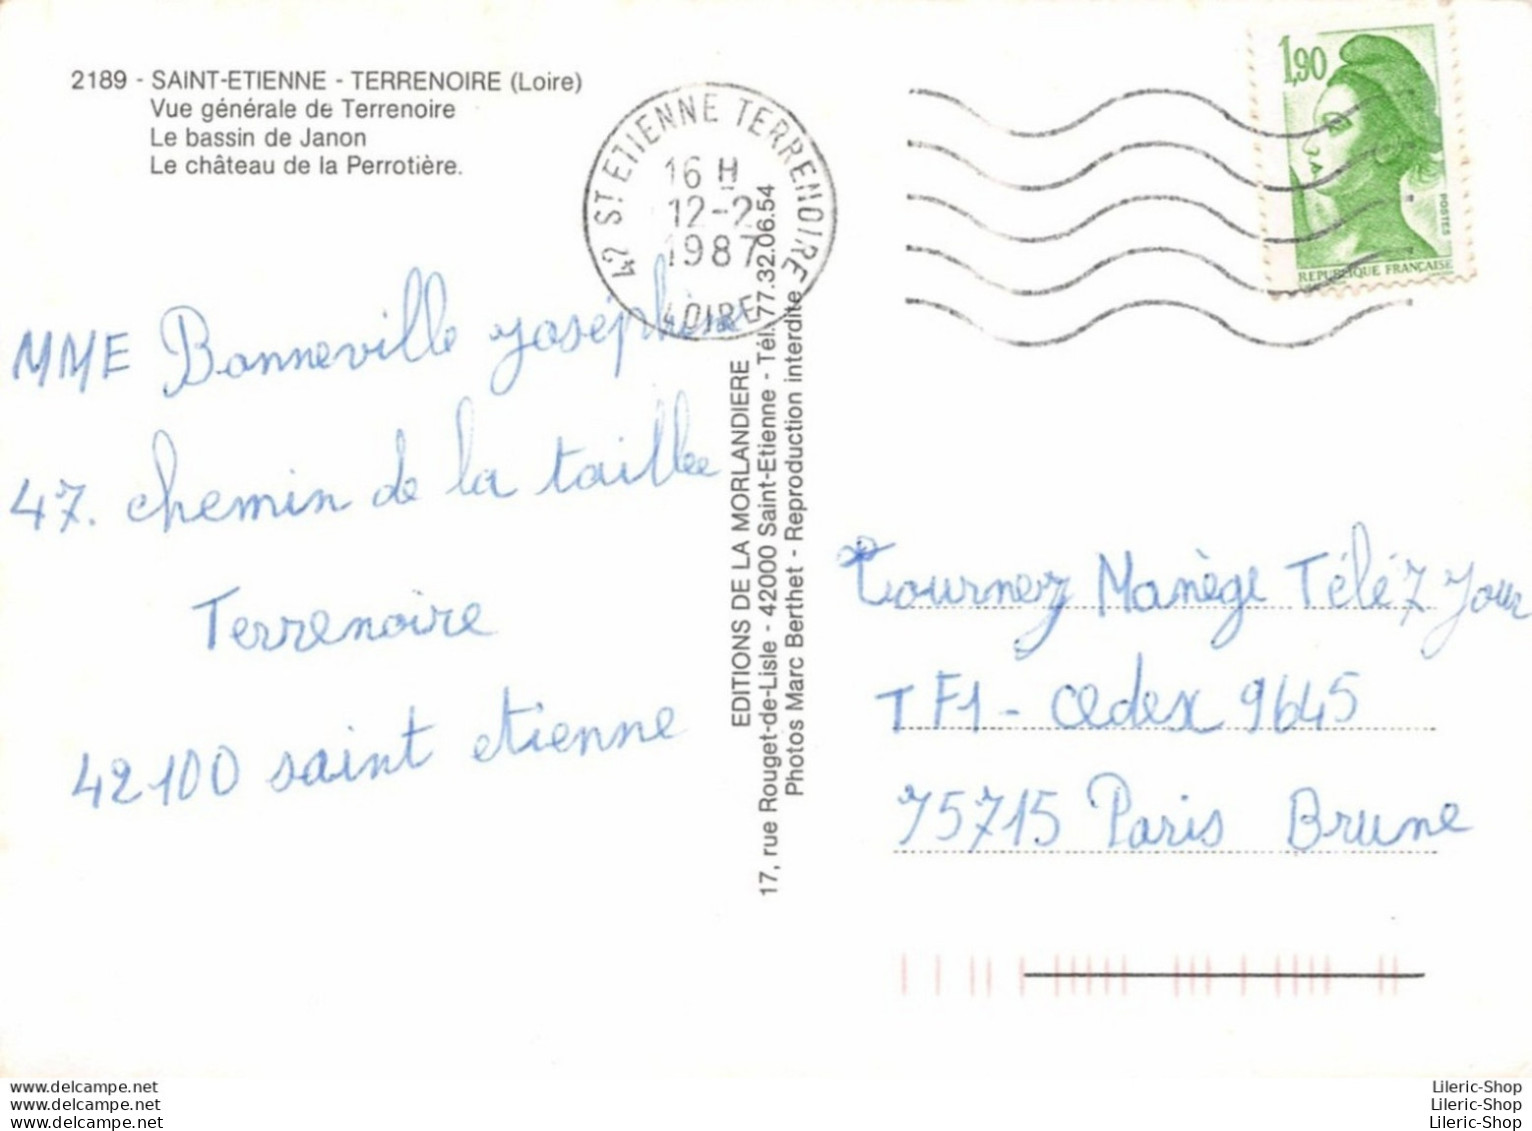 2189 - SAINT-ETIENNE - TERRENOIRE (Loire)
Vue générale de Terrenoire
Le bassin de Janon
Le château de la Perrotière.
42 ST ETIENNE TERRENOIRE
16 H
12-2
1987
LOIRE
1,90
POSTES
REPUBLIQUE FRANÇAISE
MME Bonneville Joséphine
47. chemin de la taillée
Terrenoire
42100 saint etienne
EDITIONS DE LA MORLANDIERE
17, rue Rouget-de-Lisle - 42000 Saint-Etienne - Tél. 77.32.06.54
Photos Marc Berthet - Reproduction interdite
Tournez Manège Télé 7 Jour
TF1 - cedex 9645
75715 Paris Brune
www.delcampe.net
www.delcampe.net
www.delcampe.net
Lileric-Shop
Lileric-Shop
Lileric-Shop